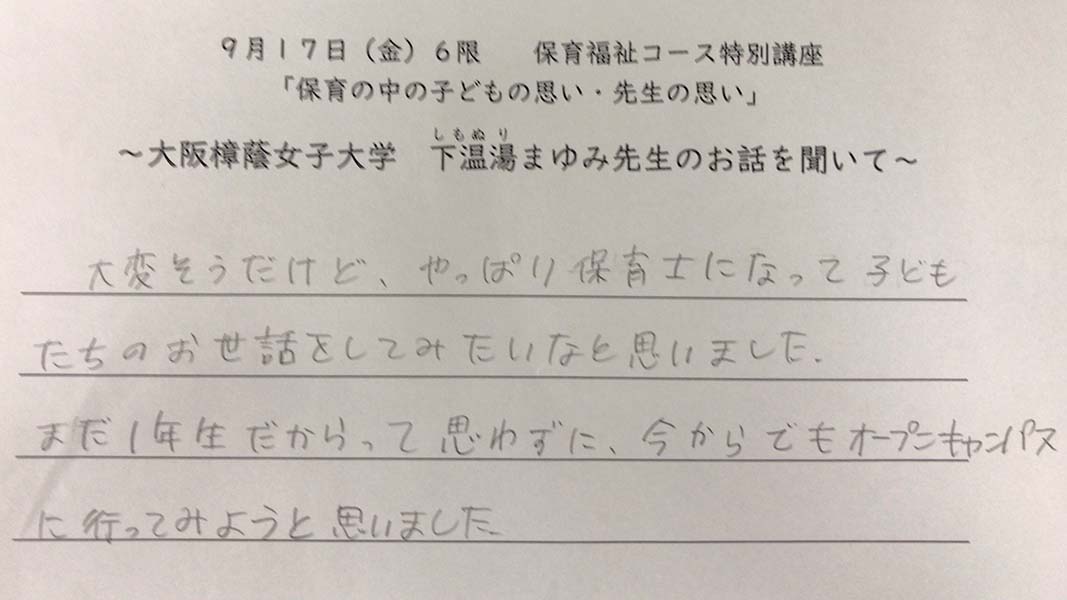 9月17日（金）6限　保育福祉コース特別講座
「保育の中の子どもの思い・先生の思い」
しもぬり
～大阪樟蔭女子大学　下温湯まゆみ先生のお話を聞いて～
大変そうだけど、やっぱり保育士になって子ども
たちのお世話をしてみたいなと思いました.
まだ1年生だからって思わずに、今からでもオープンキャンパス
に行ってみようと思いました.